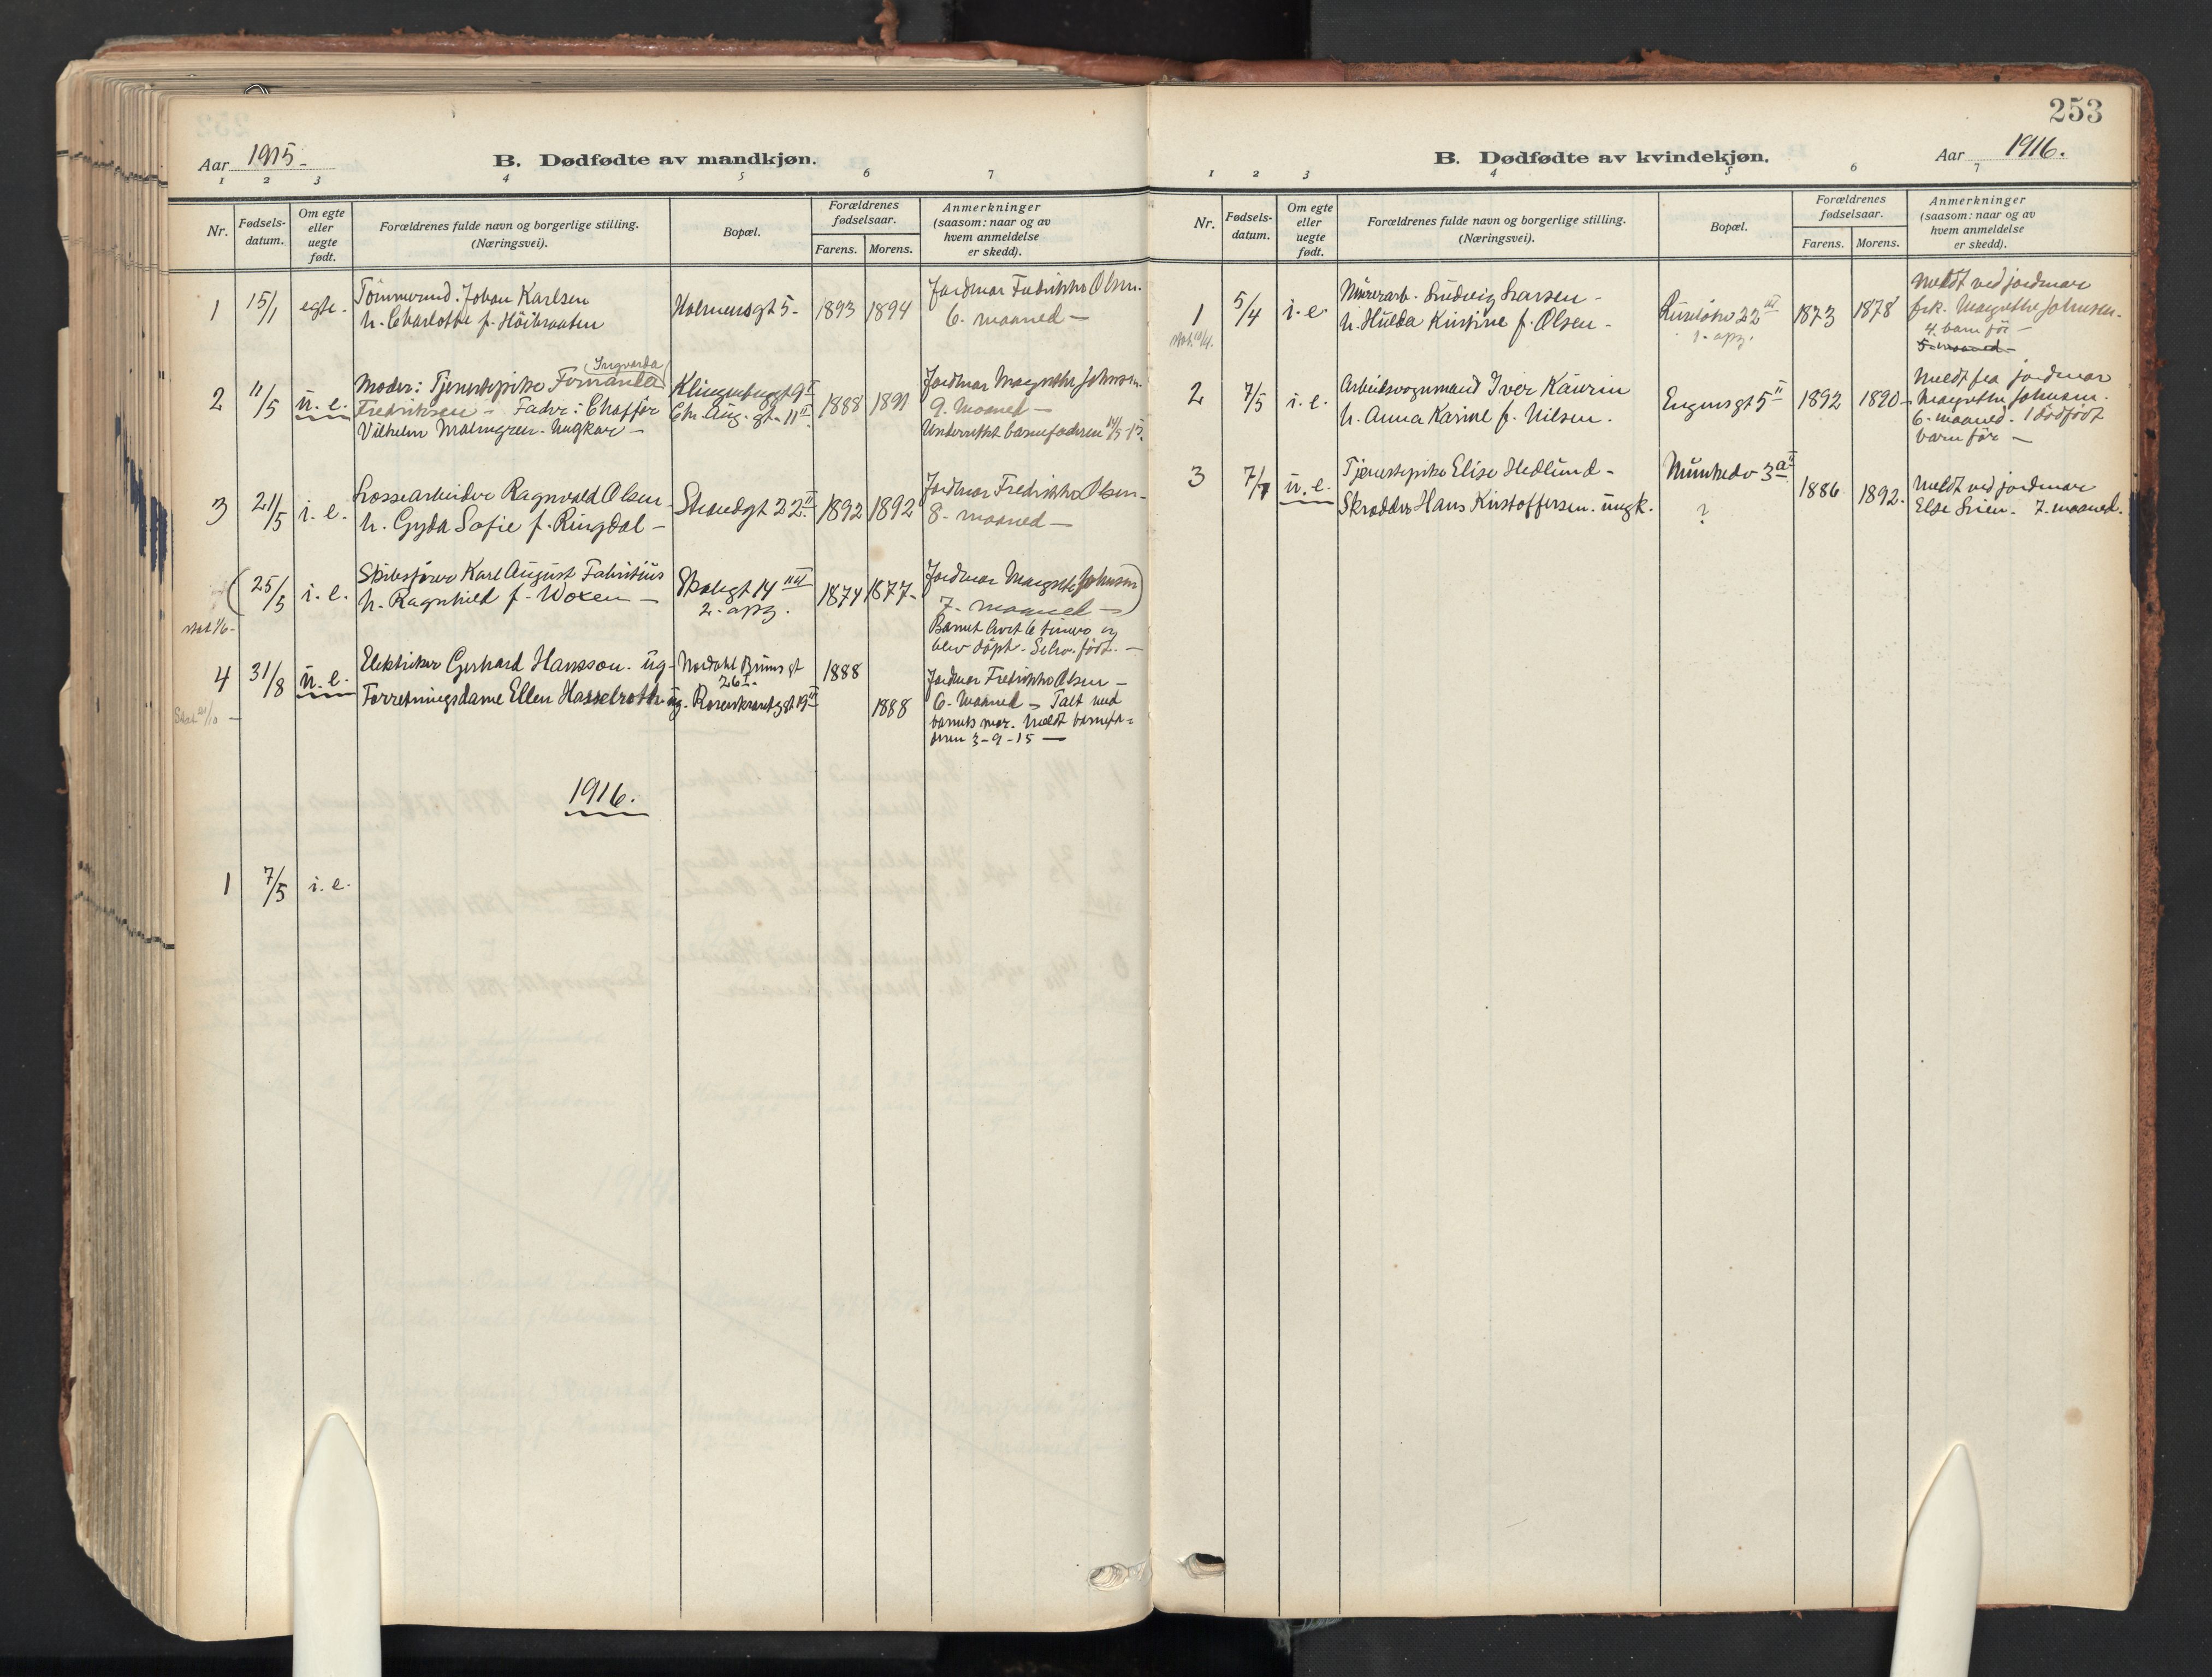 Aar 1915.
B. Dødfødte av mandkjøn.
1 2 3 4 5 6 7
Nr.
Fødsels-
datum.
Om egte
eller
uegte
født.
Forældrenes fulde navn og borgerlige stilling.
(Næringsvei).
Bopæl.
Forældrenes
fødselsaar.
Farens. Morens.
Anmerkninger
(saasom: naar og av
hvem anmeldelse
er skedd).
1 15/1 egte. Tömmermd. Johan Karlsen Holmensgt 5- 1893 1894 Jordmor Fredrikke Olsen.
h. Charlotte f. Höibraaten 6. maaned —
Ingvarda
2 11/5 u. e. Moder: Tjenestepike Fernanda Klingenbergt 9 II 1888 1891 Jordmor Margrethe Johnsen.
Fredriksen - Fader: Chaffør Chr. Aug. gt. 11 II 9. Maaned —
Vilhelm Malmgren. Ungkar — Underrettet barnefaderen 14/5-15.
3 21/5 i. e. Lossearbeider Ragnvald Olsen Strandgt 22 II 1892 1892 Jordmor Fredrikke Olsen-
h. Gyda Sofie f. Ringdal — 8. maaned —
( 25/5 i. e. Skibsfører Karl August Fabritius Skolegt 14 III 1874 1877- Jordmor Margrethe Johnsen )
h. Ragnhild f. Woxen — 2. opg. 7. maaned —
1/6 - Barnet levet 6 timer og
blev döpt. født. —
4 31/8 u. e. Elektriker Gerhard Hansson. ug- Nordahl Bruns gt 1888 Jordmor Fredrikke Olsen —
26 I.
Forretningsdame Ellen Hasselroth ug. Rosenkrantzgt 19 II 1888 6. Maaned — Talt med
barnets mor. Meldt barnefa-
deren 3-9-15 —
1916.
1 7/5 i. e.
253
B. Dødfødte av kvindekjøn.
Aar 1916.
1 2 3 4 5 6 7
Nr.
Fødsels-
datum.
Om egte
eller
uegte
født.
Forældrenes fulde navn og borgerlige stilling.
(Næringsvei).
Bopæl.
Forældrenes
fødselsaar.
Farens. Morens.
Anmerkninger
(saasom: naar og av
hvem anmeldelse
er skedd).
1 5/4 i. e. Murerarb. Ludvig Larsen - 22 III 1873 1878 Meldt ved jordmor
h. Hulda Kristine f. Olsen - 1. opg. frk. Margrethe Johnsen.
4. barn før —
5. maaned —
2 7/5 i. e. Arbeidsvognmand Iver Kaurin Engensgt 5 II 1892 1890- Meldt fra jordmor
h. Anna Karine f. Nilsen. Margrethe Johnsen.
6. maaned. 1 dødfødt
barn før —
3 7/7 u. e. Tjenestepike Elise Hedlund - Munkedv 3 a II 1886 1892. Meldt ved jordmor
Skrædder Hans Kristoffersen. ungk. ? Else Lien. 7. maaned.